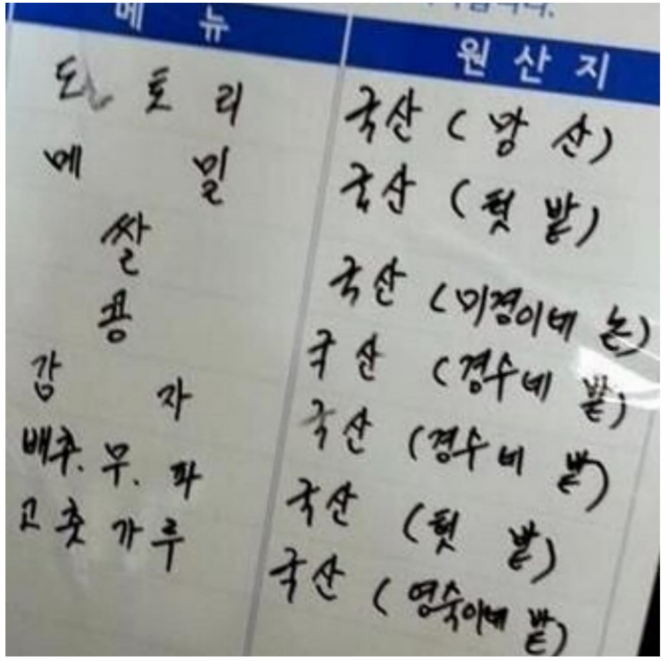 메뉴 원산지
도토리 국산 (앞산)
메밀 국산 (텃밭)
쌀 국산 (미경이네 논)
콩 국산 (경수네 밭)
감자 국산 (경수네 밭)
배추. 무. 파 국산 (텃밭)
고춧가루 국산 (영숙이네 밭)